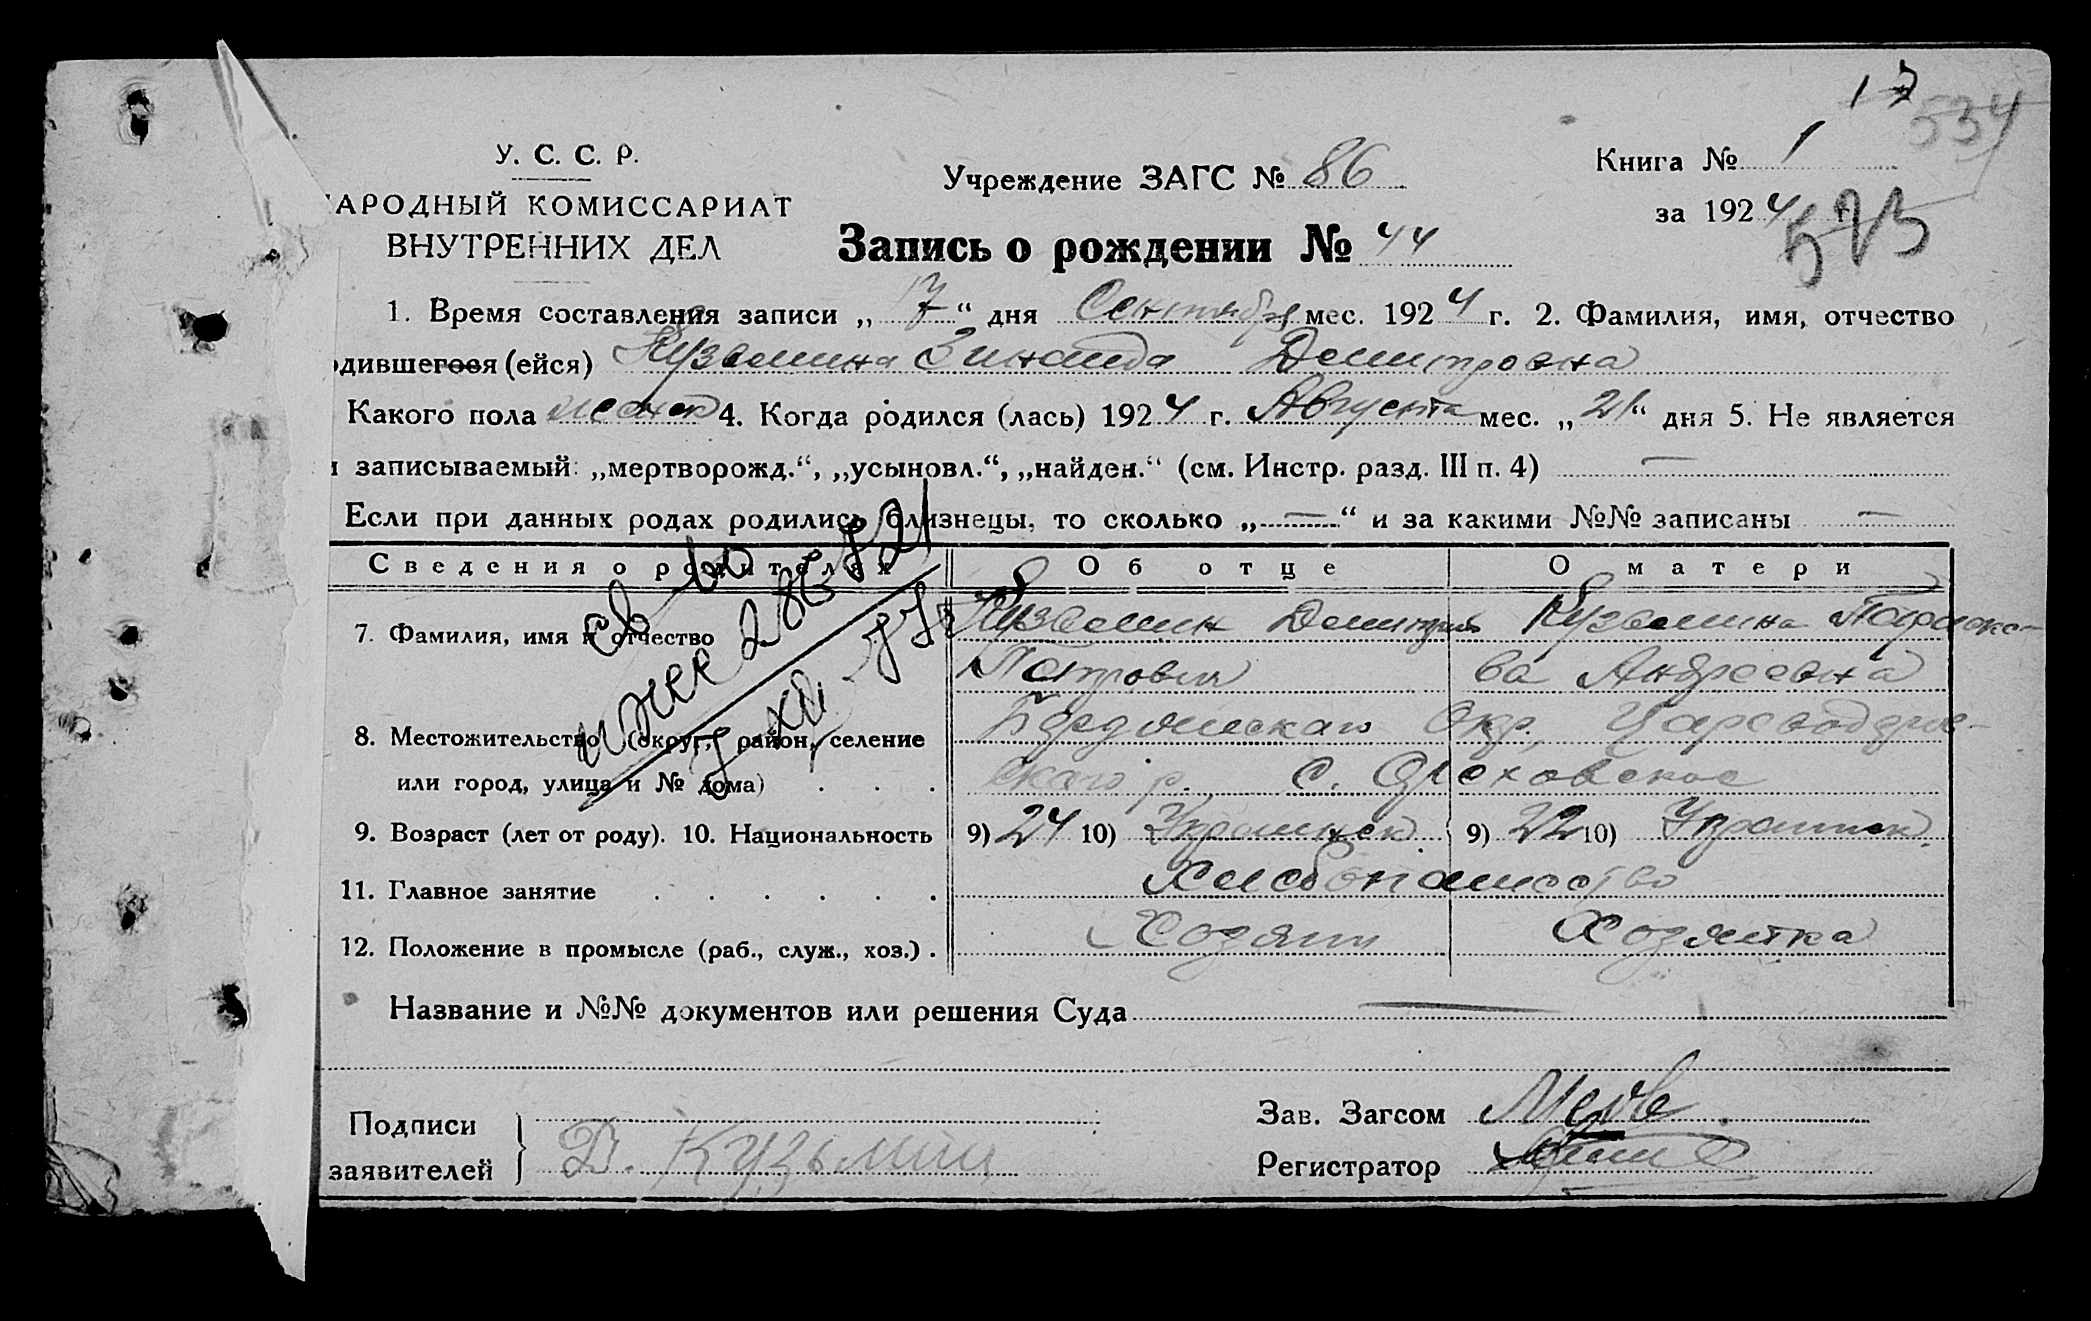 17
534
У. С. С. Р.
АРОДНЫЙ КОМИССАРИАТ
ВНУТРЕННИХ ДЕЛ
Учреждение ЗАГС № 86
Запись о рождении № 44
Книга № 1
за 1924 г.
573
1. Время составления записи „ 7 “ дня Сентября мес. 1924 г. 2. Фамилия, имя, отчество
одившегося (ейся) Кузьмина Зинаида Дмитровна
Какого пола женск 4. Когда родился (лась) 1924 г. Августа мес. „ 21 “ дня 5. Не является
и записываемый: „мертворожд.“, „усыновл.“, „найден.“ (см. Инстр. разд. III п. 4) —
Если при данных родах родились близнецы, то сколько „ — “ и за какими №№ записаны —
Сведения о родителях Об отце О матери
7. Фамилия, имя и отчество Кузьмин Дмитрий Кузьмина
Петрович ва Андреевна
8. Местожительство (округ, район, селение Бердянскаго Окр.
или город, улица и № дома) скаго р. с. Ореховское
9. Возраст (лет от роду). 10. Национальность 9) 24 10) Украинск 9) 22 10) Украинск
11. Главное занятие Хлебопашество
12. Положение в промысле (раб., служ., хоз.) Хозяин Хозяйка
Название и №№ документов или решения Суда
Подписи
заявителей
Д. Кузьмин
Зав. Загсом
Регистратор